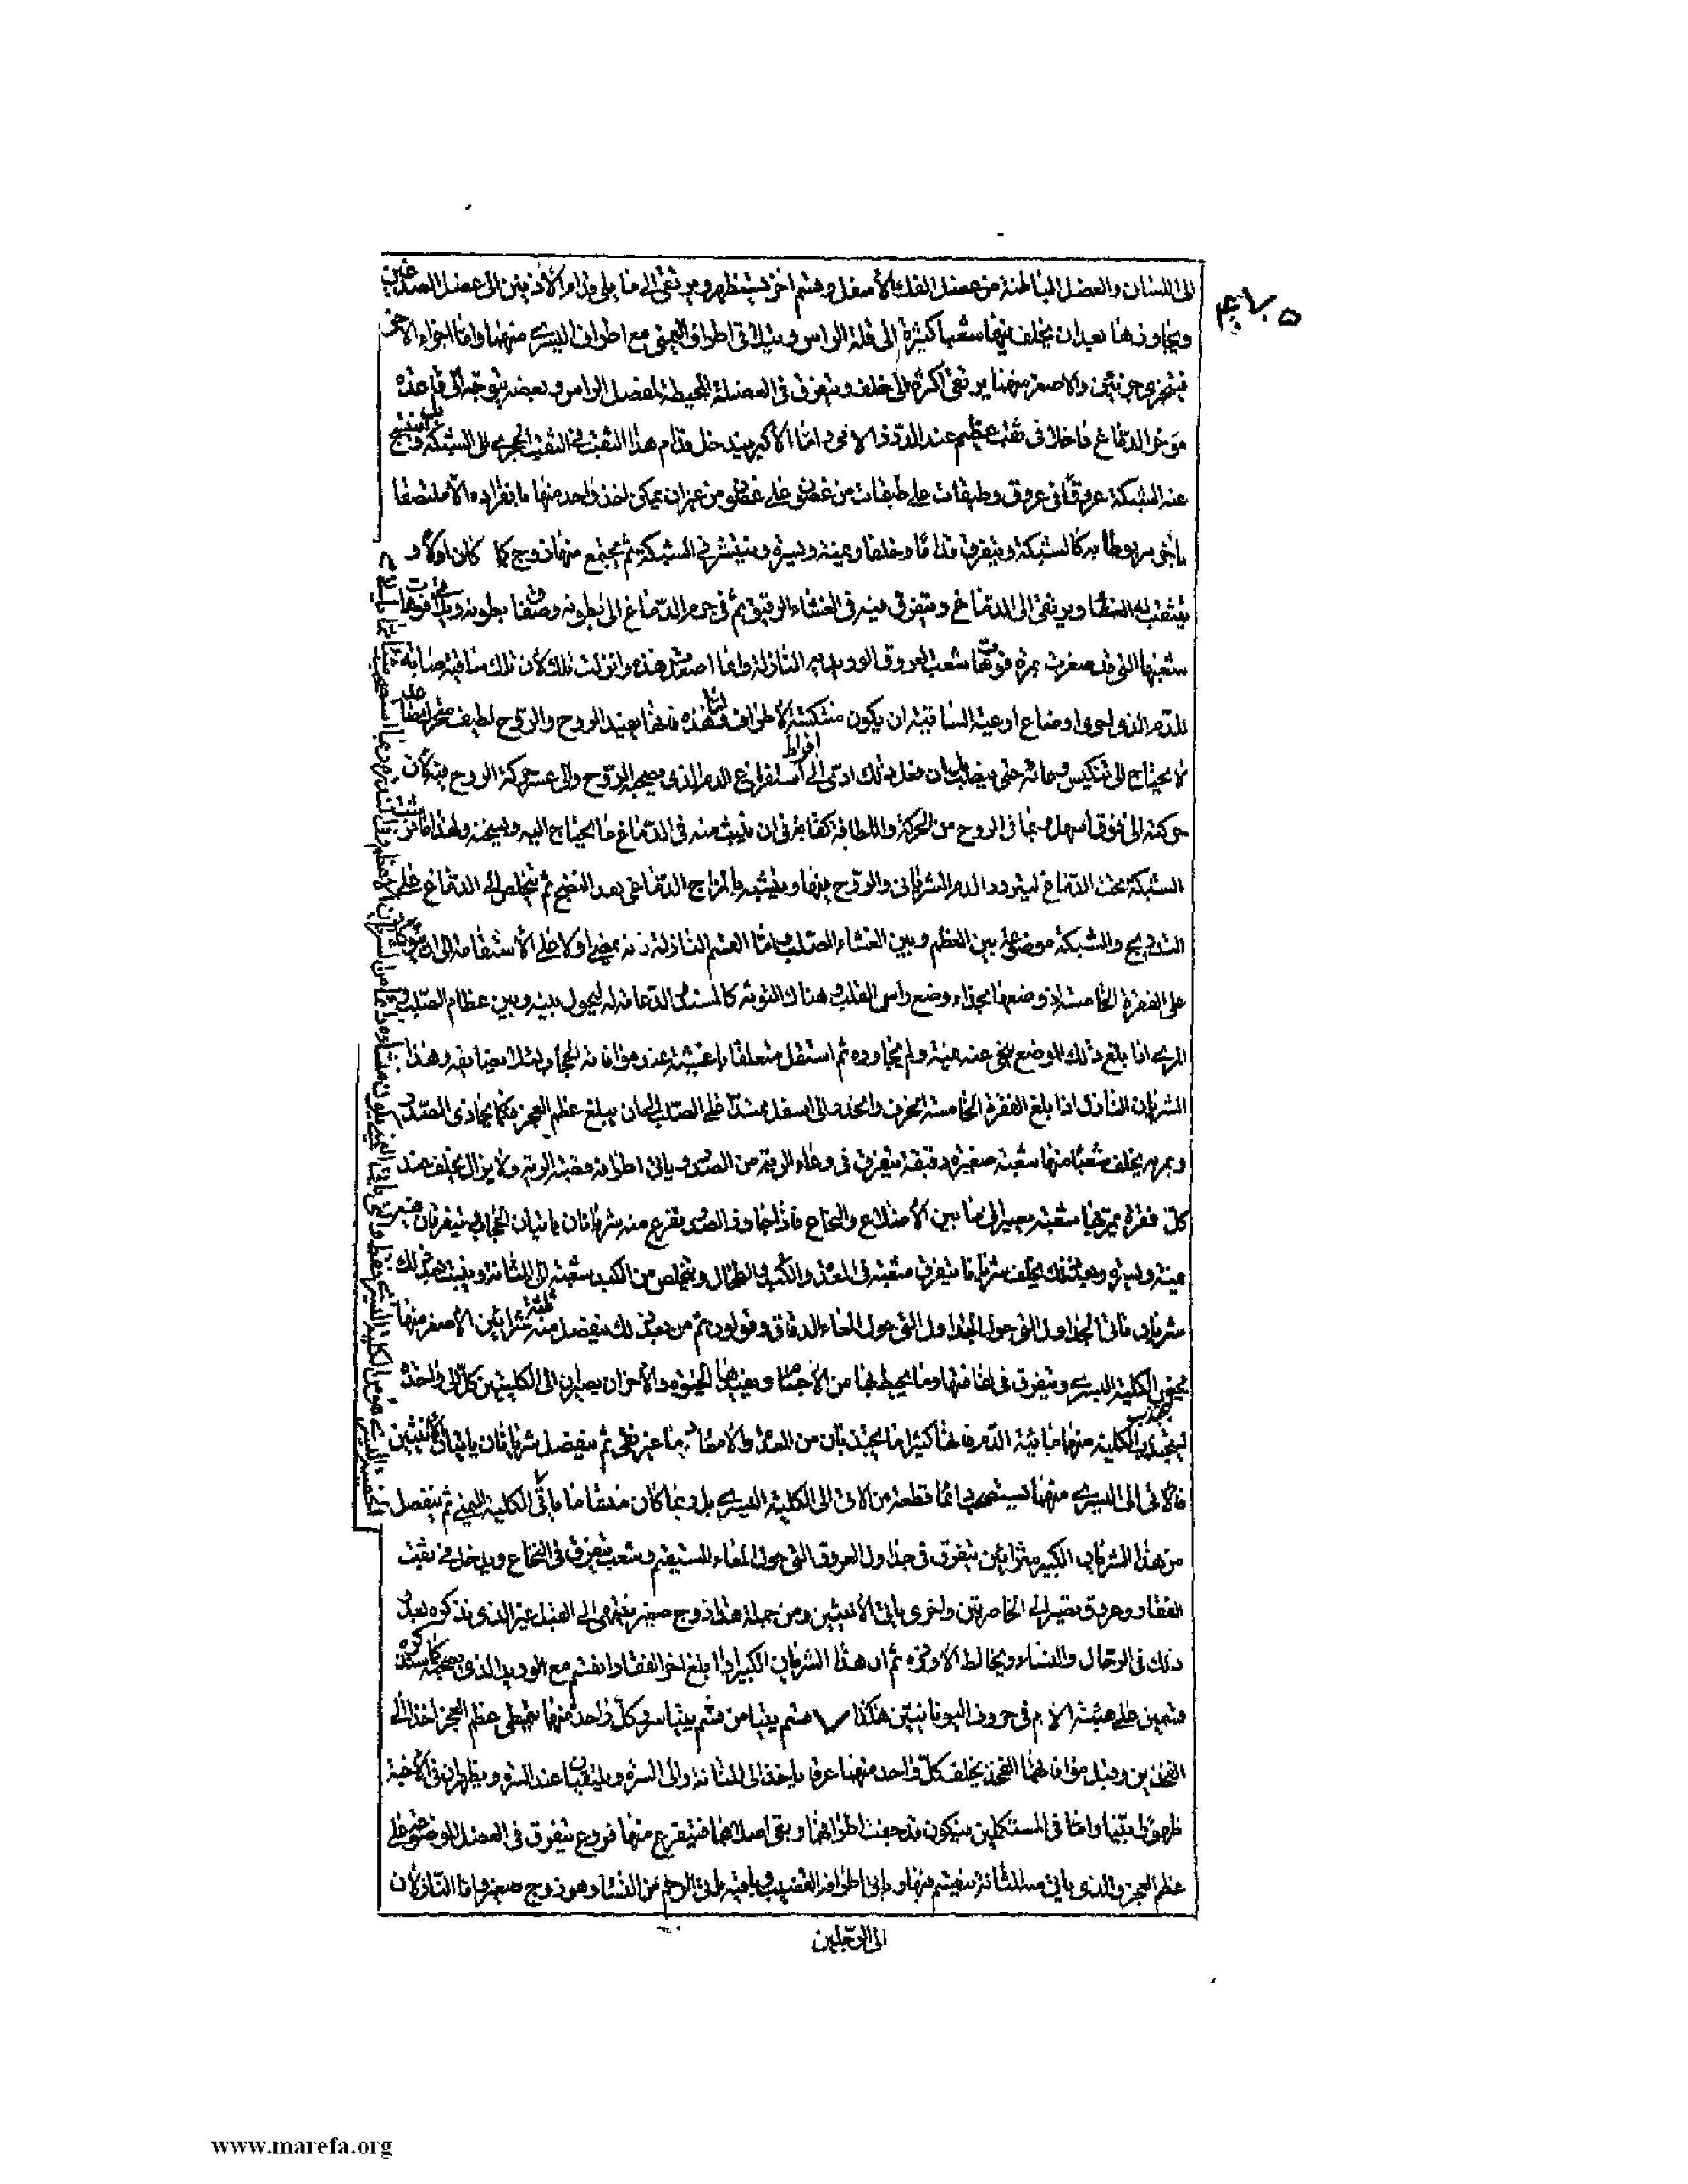 الى اللسان والعضل الباطنة من عضل الفك الأسفل وقسم اخر يستظهر ويرتقى الى ما يلى قدام الأذنين الى عضل الصدغين
ويجاوزها بعد ان يخلف فيها شعبا كثيرة الى قلة الراس ويتلاقى اطراف اليمنى مع اطراف اليسرى منهما واما الجزء الاخر
فيتجزى جزئين والاصغر منهما يرتقى اكثره الى خلف ويتفرق فى العضلة المحيطة بمفصل الراس وبعضه يتوجه الى قاعدة
مؤخر الدماغ داخلا فى ثقب عظيم عند الدرز اللامى واما الاكبر فيدخل قدام هذا الثقب فى الثقب الحجرى الى الشبكة بل تنتسج
عنه الشبكة عروقا فى عروق وطبقات على طبقات من غضون على غضون من غير ان يمكن اخذ واحد منها بانفراده الا ملتصقا
باخر مربوطا به كالشبكة ويتفرق قداما وخلفا ويمنة ويسرة وينتشر فى الشبكة ثم يجتمع منها زوج كما كان اولا و
ينثقب له الغشاء ويرتقى الى الدماغ ويتفرق فيه فى الغشاء الرقيق ثم فى جرم الدماغ الى بطونه وصفاق بطونه ويلاقى فوهات
شعبها التى قد صغرت بمرة فوهات شعب العروق الوريدية النازلة وانما اصعدت هذه وانزلت تلك لأن تلك ساقية صابة
للدم الذى اجود اوضاع اوعية الساقية ان يكون منتكسة الأطراف واما هذه فانها تنفيذ الروح والروح لطيف متحرك صاعد
لا يحتاج الى تنكيس وعائه حتى ينصب بل ان فعل ذلك ادى الى افراط استفراغ الدم الذى يصحبه الروح والى عسر حركة الروح فيه لأن
حركته الى فوق اسهل وبما فى الروح من الحركة واللطافة كفاية فى ان ينبث منه فى الدماغ ما يحتاج اليه ويسخنه ولهذا ما فرشت
الشبكة تحت الدماغ ليتردد الدم الشريانى والروح فيها ويتشبه بالمزاج الدماغى بعد النضج ثم يتخلص الى الدماغ على
التدريج والشبكة موضوعة بين العظم وبين الغشاء الصلب واما القسم النازل فانه يمضى اولا على الأستقامة الى ان يتوكأ
على الفقرة الخامسة اذ وضعها بحذاء وضع راس القلب وهناك التوثة كالمسند والدعامة له ليحول بينه وبين عظام الصلب و
المرى اذا بلغ ذلك الموضع تنحى عنه يمنة ولم يجاوره ثم استقل متعلقا باغشية عند موافاته الحجاب لئلا يضايقه وهذا
الشريان النازل اذا بلغ الفقرة الخامسة انحرف وانحدر الى اسفل ممتدا على الصلب الى ان يبلغ عظم العجز وكما يحاذى الصدر
ويمر به يخلف شعبا منها شعبة صغيرة دقيقة يتفرق فى وعاء الرية من الصدر وياتى اطرافه قصبة الرية ولا يزال يخلف عند
كل فقرة يمر بها شعبة يصير الى ما بين الأضلاع والنخاع فاذا جاوز الصدر تفرع منه شريانان ياتيان الحجاب يتفرقان فيه
يمنة ويسرة وبعد ذلك يخلف شريانا يتفرق شعبه فى المعدة والكبد والطحال ويتخلص من الكبد شعبة الى المثانة وينبت بعد ذلك
شريان ياتى الجداول التى حول المعاء الدقاق وقولون ثم من بعد ذلك ينفصل منه ثلثة شرائين الأصغر منها
يخص الكلية اليسرى ويتفرق فى لفافتها وما يحيط بها من الأجسام ويفيدها الحيوة والأخران يصيران الى الكليتين
ليجتذب الكلية منهما مائية الدم فانهما كثيرا ما يجتذبان من المعدة والامعاء دما غير نقى ثم ينفصل شريانان ياتيان الأنثيين
فالاتى الى اليسرى منهما يستصحب دائما قطعة من الاتى الى الكلية اليسرى بل ربما كان منشاءه ما ياتى الكلية اليمنى ثم ينفصل
من هذا الشريان الكبير شرائين يتفرق فى جداول العروق التى حول المعاء المستقيم وشعب يتفرق فى النخاع ويدخل فى ثقب
الفقار وعروق تصير الى الخاصرتين واخرى ياتى الأنثيين ومن جملة هذا زوج صغير ينتهى الى القبل غير الذى نذكره بعد
ذلك فى الرجال والنساء ويخالط الأوردة ثم ان هذا الشريان الكبير اذا بلغ اخر الفقار انقسم مع الوريد الذى يصحبه كما سنذكره
قسمين على هيئة اللام فى حروف اليونانيين هكذا ٨ قسم يتيامن وقسم يتياسر وكل واحد منهما يمتطى عظم العجز اخذا الى
الفخذين وقبل موافاتهما الفخذ يخلف كل واحد منهما عرقا ياخذ الى المثانة والى السرة ويلتقيان عند السرة ويظهران فى الأجنة
ظهورا بينا واما فى المستكملين فيكون قد جفت اطرافهما وبقى اصلاهما فيتفرع منهما فروع يتفرق فى العضل الموضوع على
عظم العجز والذى ياتى منه المثانة ينقسم فيها وياتى اطرافه القضيب وباقيه ياتى الرحم من النساء وهو زوج صغير واما النازلان
الى الرجلين
www.marefa.org